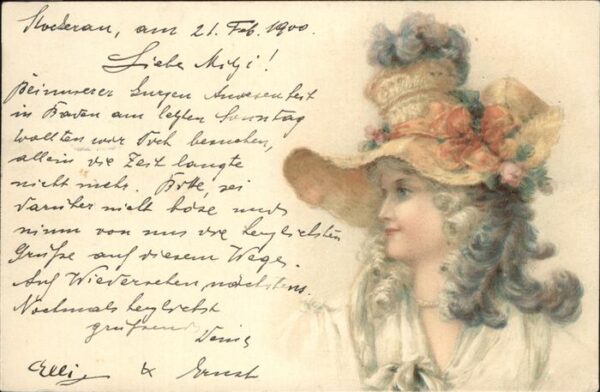 Stockerau, am 21. Feb. 1900.
Liebe Milzi!
Bei unserer kurzen Anwesenheit
in Baden am letzten Sonntag
wollten wir Dich besuchen,
allein die Zeit langte
nicht mehr. Bitte, sei
darüber nicht böse und
nimm von uns die herzlichsten
Grüße auf diesem Wege.
Auf Wiedersehen nächstens.
Nochmals herzlichst
grüßend
Elli & Ernst